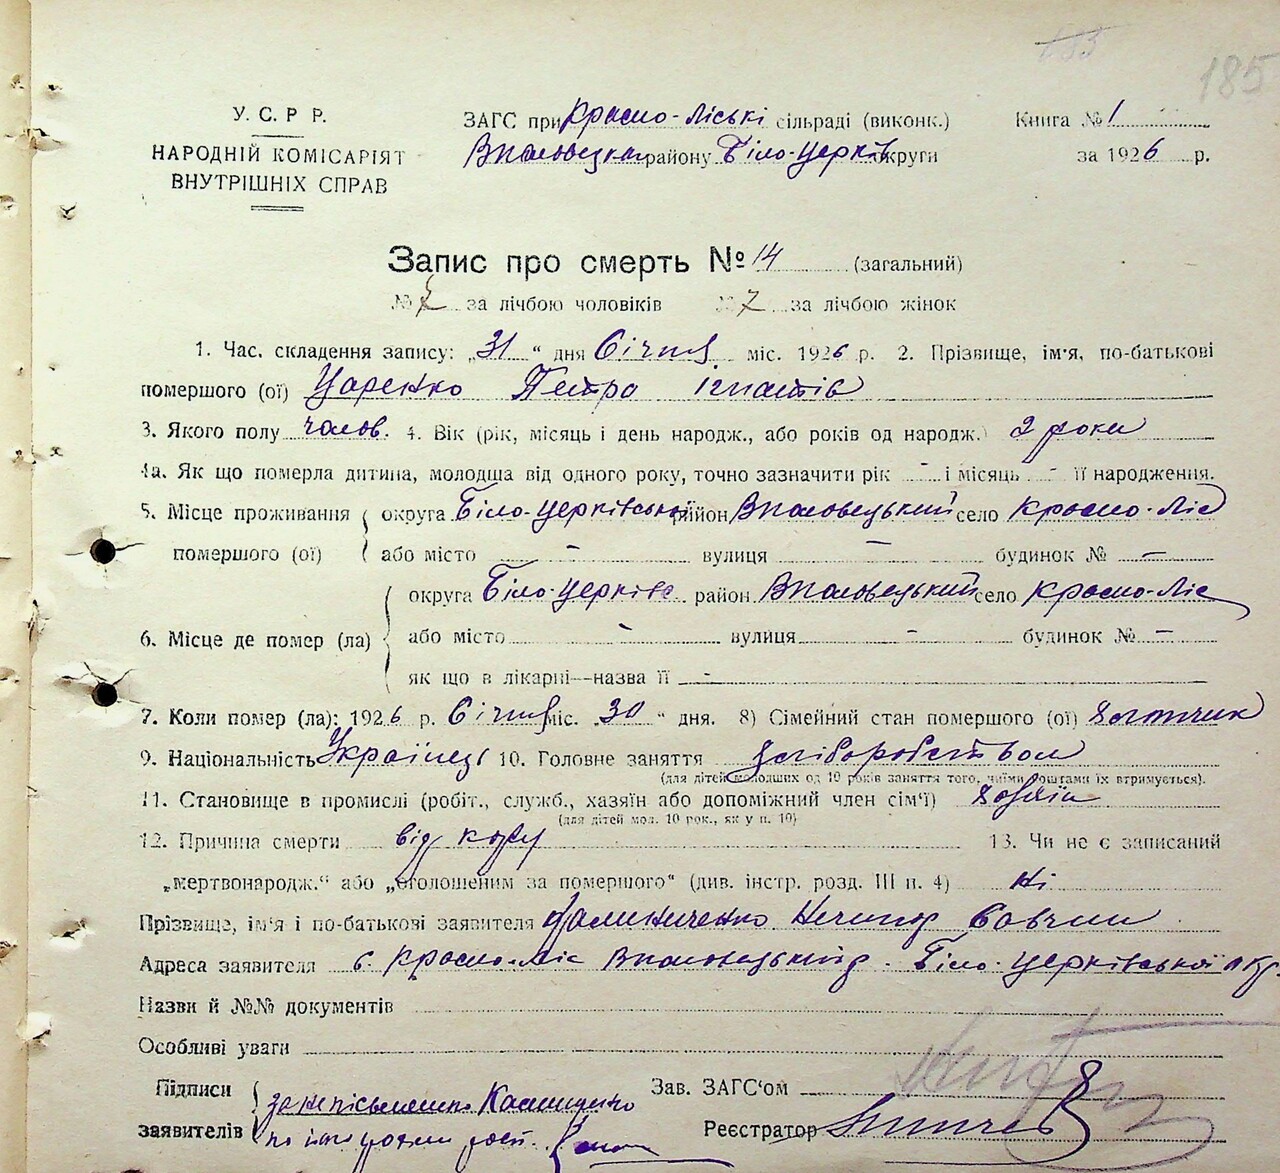 185
185
У. С. Р Р.
НАРОДНІЙ КОМІСАРІЯТ
ВНУТРІШНІХ СПРАВ
ЗАГС при Красно-Ліські сільраді (виконк.)
району Біло-Церків округи
Книга № 1
за 1926 р.
Запис про смерть № 14 (загальний)
№ 7 за лічбою чоловіків № 7 за лічбою жінок
1. Час. складення запису: „31“ дня Січня міс. 1926 р. 2. Прізвище, ім'я, по-батькові
помершого (ої) Царенко Петро Ігнатів
3. Якого полу чолов. 4. Вік (рік, місяць і день народж., або років од народж.) 2 роки
4а. Як що померла дитина, молодша від одного року, точно зазначити рік - і місяць - її народження.
5. Місце проживання помершого (ої) округа Біло-Церківська район село Красно-Ліс
або місто - вулиця - будинок № -
6. Місце де помер (ла) округа Біло-Церківс район село Красно-Ліс
або місто - вулиця - будинок № -
як що в лікарні—назва її -
7. Коли помер (ла): 1926 р. Січня міс. „30“ дня. 8) Сімейний стан помершого (ої) хлопчик
9. Національність Українец 10. Головне заняття хліборобством
(для дітей молодших од 10 років заняття того, чиїми коштами їх втримується).
11. Становище в промислі (робіт., служб., хазяїн або допоміжний член сім'ї) хозяїн
(для дітей мол. 10 рок., як у п. 10)
12. Причина смерти від кору 13. Чи не є записаний
„мертвонародж.“ або „оголошеним за помершого“ (див. інстр. розд. III п. 4) ні
Прізвище, ім'я і по-батькові заявителя Нечипор Савчин
Адреса заявителя с. Красно-Ліс Біло-Церківської окр.
Назви й №№ документів
Особливі уваги
Підписи заявителів за неписьменного
Зав. ЗАГС'ом
Реєстратор